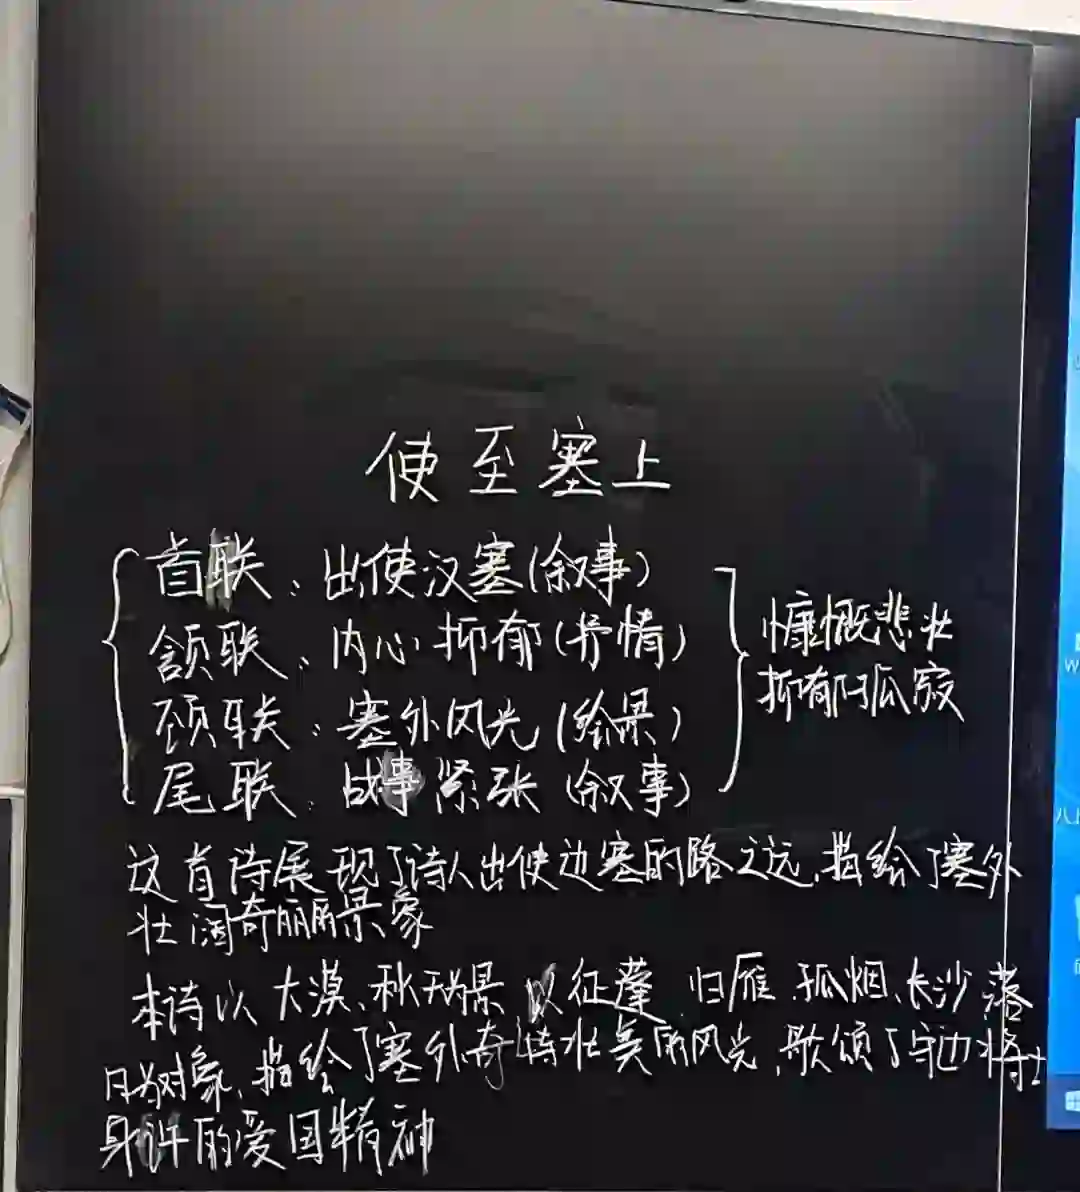 使至塞上
首联：出使汉塞(叙事)
额联：内心抑郁(抒情)
颈联：塞外风光(绘景)
尾联：战事紧张(叙事)
慷慨悲壮
抑郁孤寂
这首诗展现了诗人出使边塞的路之远,描绘了塞外
壮阔奇丽景象
本诗以大漠、秋天为景 以征蓬、归雁、孤烟、长沙落
日为对象,描绘了塞外奇特壮美的风光,歌颂了守边将士
身许的爱国精神
W
八